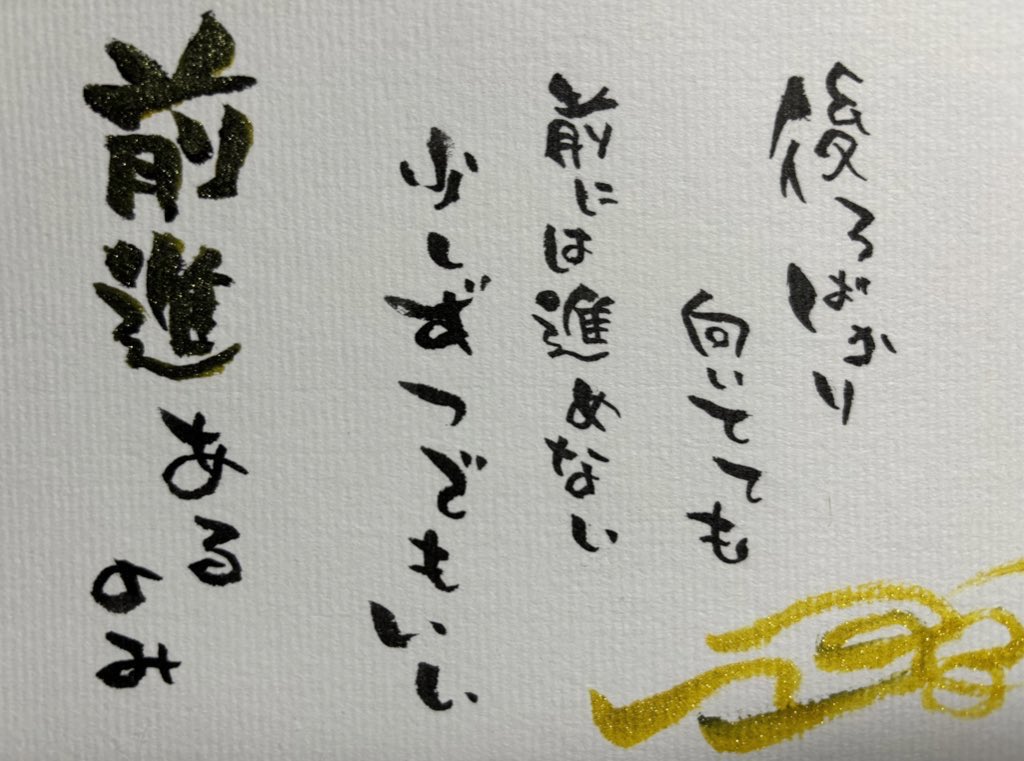 後ろばかり
向いてても
前には進めない
少しずつでもいい
前進あるのみ